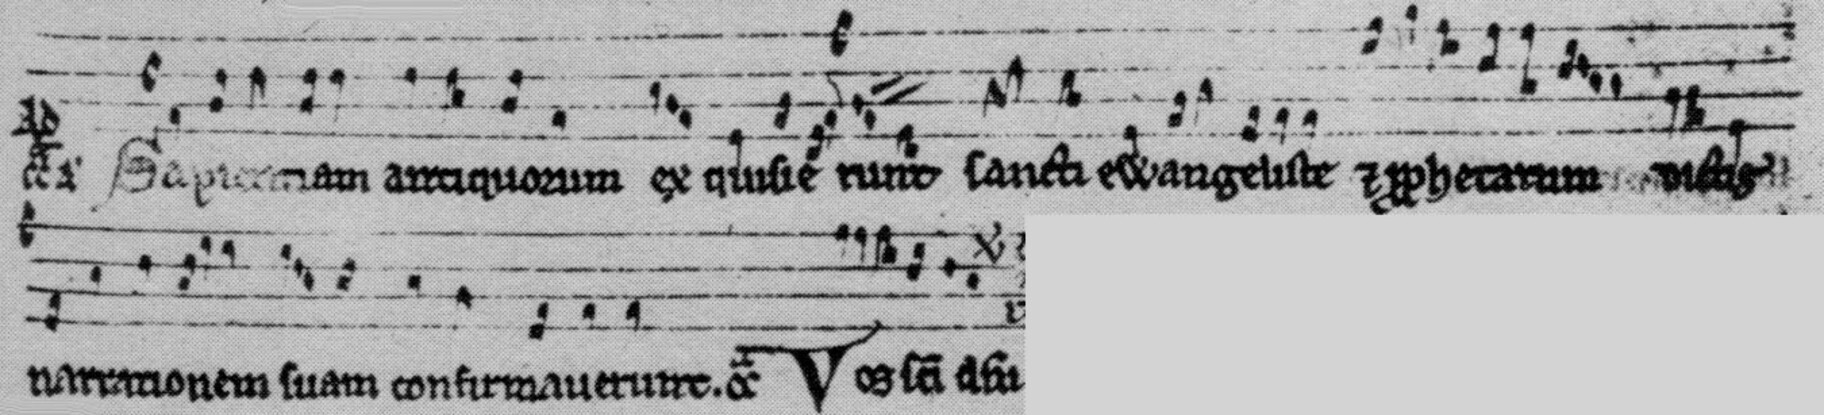 Ad
Sapientiam antiquorum ex quisie runt sancti ewangeliste ⁊ ꝓphetarum dictis
narrationem suam confirmauerunt. oc̄ Vos sc̄i dn̄i